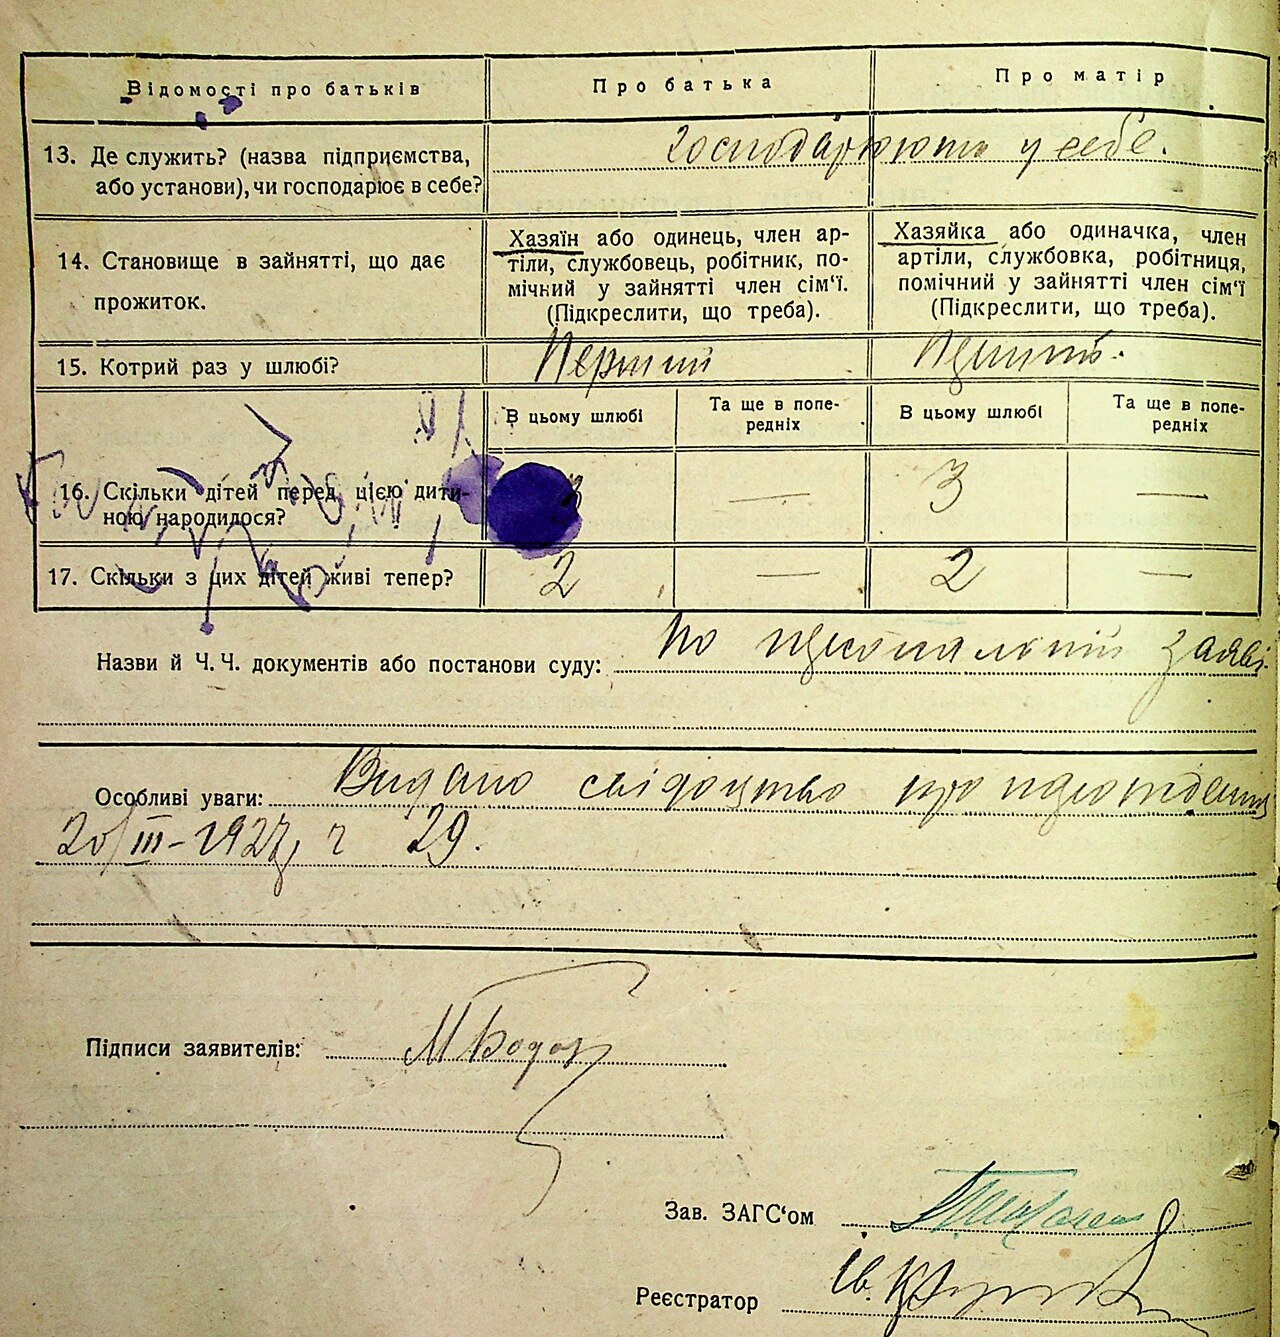 Відомості про батьків
Про батька
Про матір
13. Де служить? (назва підприємства,
або установи), чи господарює в себе?
господарюють у себе.
14. Становище в зайнятті, що дає
прожиток.
Хазяїн або одинець, член ар-
тіли, службовець, робітник, по-
мічний у зайнятті член сім'ї.
(Підкреслити, що треба).
Хазяйка або одиначка, член
артіли, службовка, робітниця,
помічний у зайнятті член сім'ї
(Підкреслити, що треба).
15. Котрий раз у шлюбі?
Перший
В цьому шлюбі
Та ще в попе-
редніх
В цьому шлюбі
Та ще в попе-
редніх
16. Скільки дітей перед цією дити-
ною народилося?
3 — 3 —
17. Скільки з цих дітей живі тепер?
2 — 2 —
Назви й Ч. Ч. документів або постанови суду: по заяві.
Особливі уваги: Видано свідоцтво про
20/III-1927, ч 29.
Підписи заявителів:
Зав. ЗАГС'ом
Реєстратор